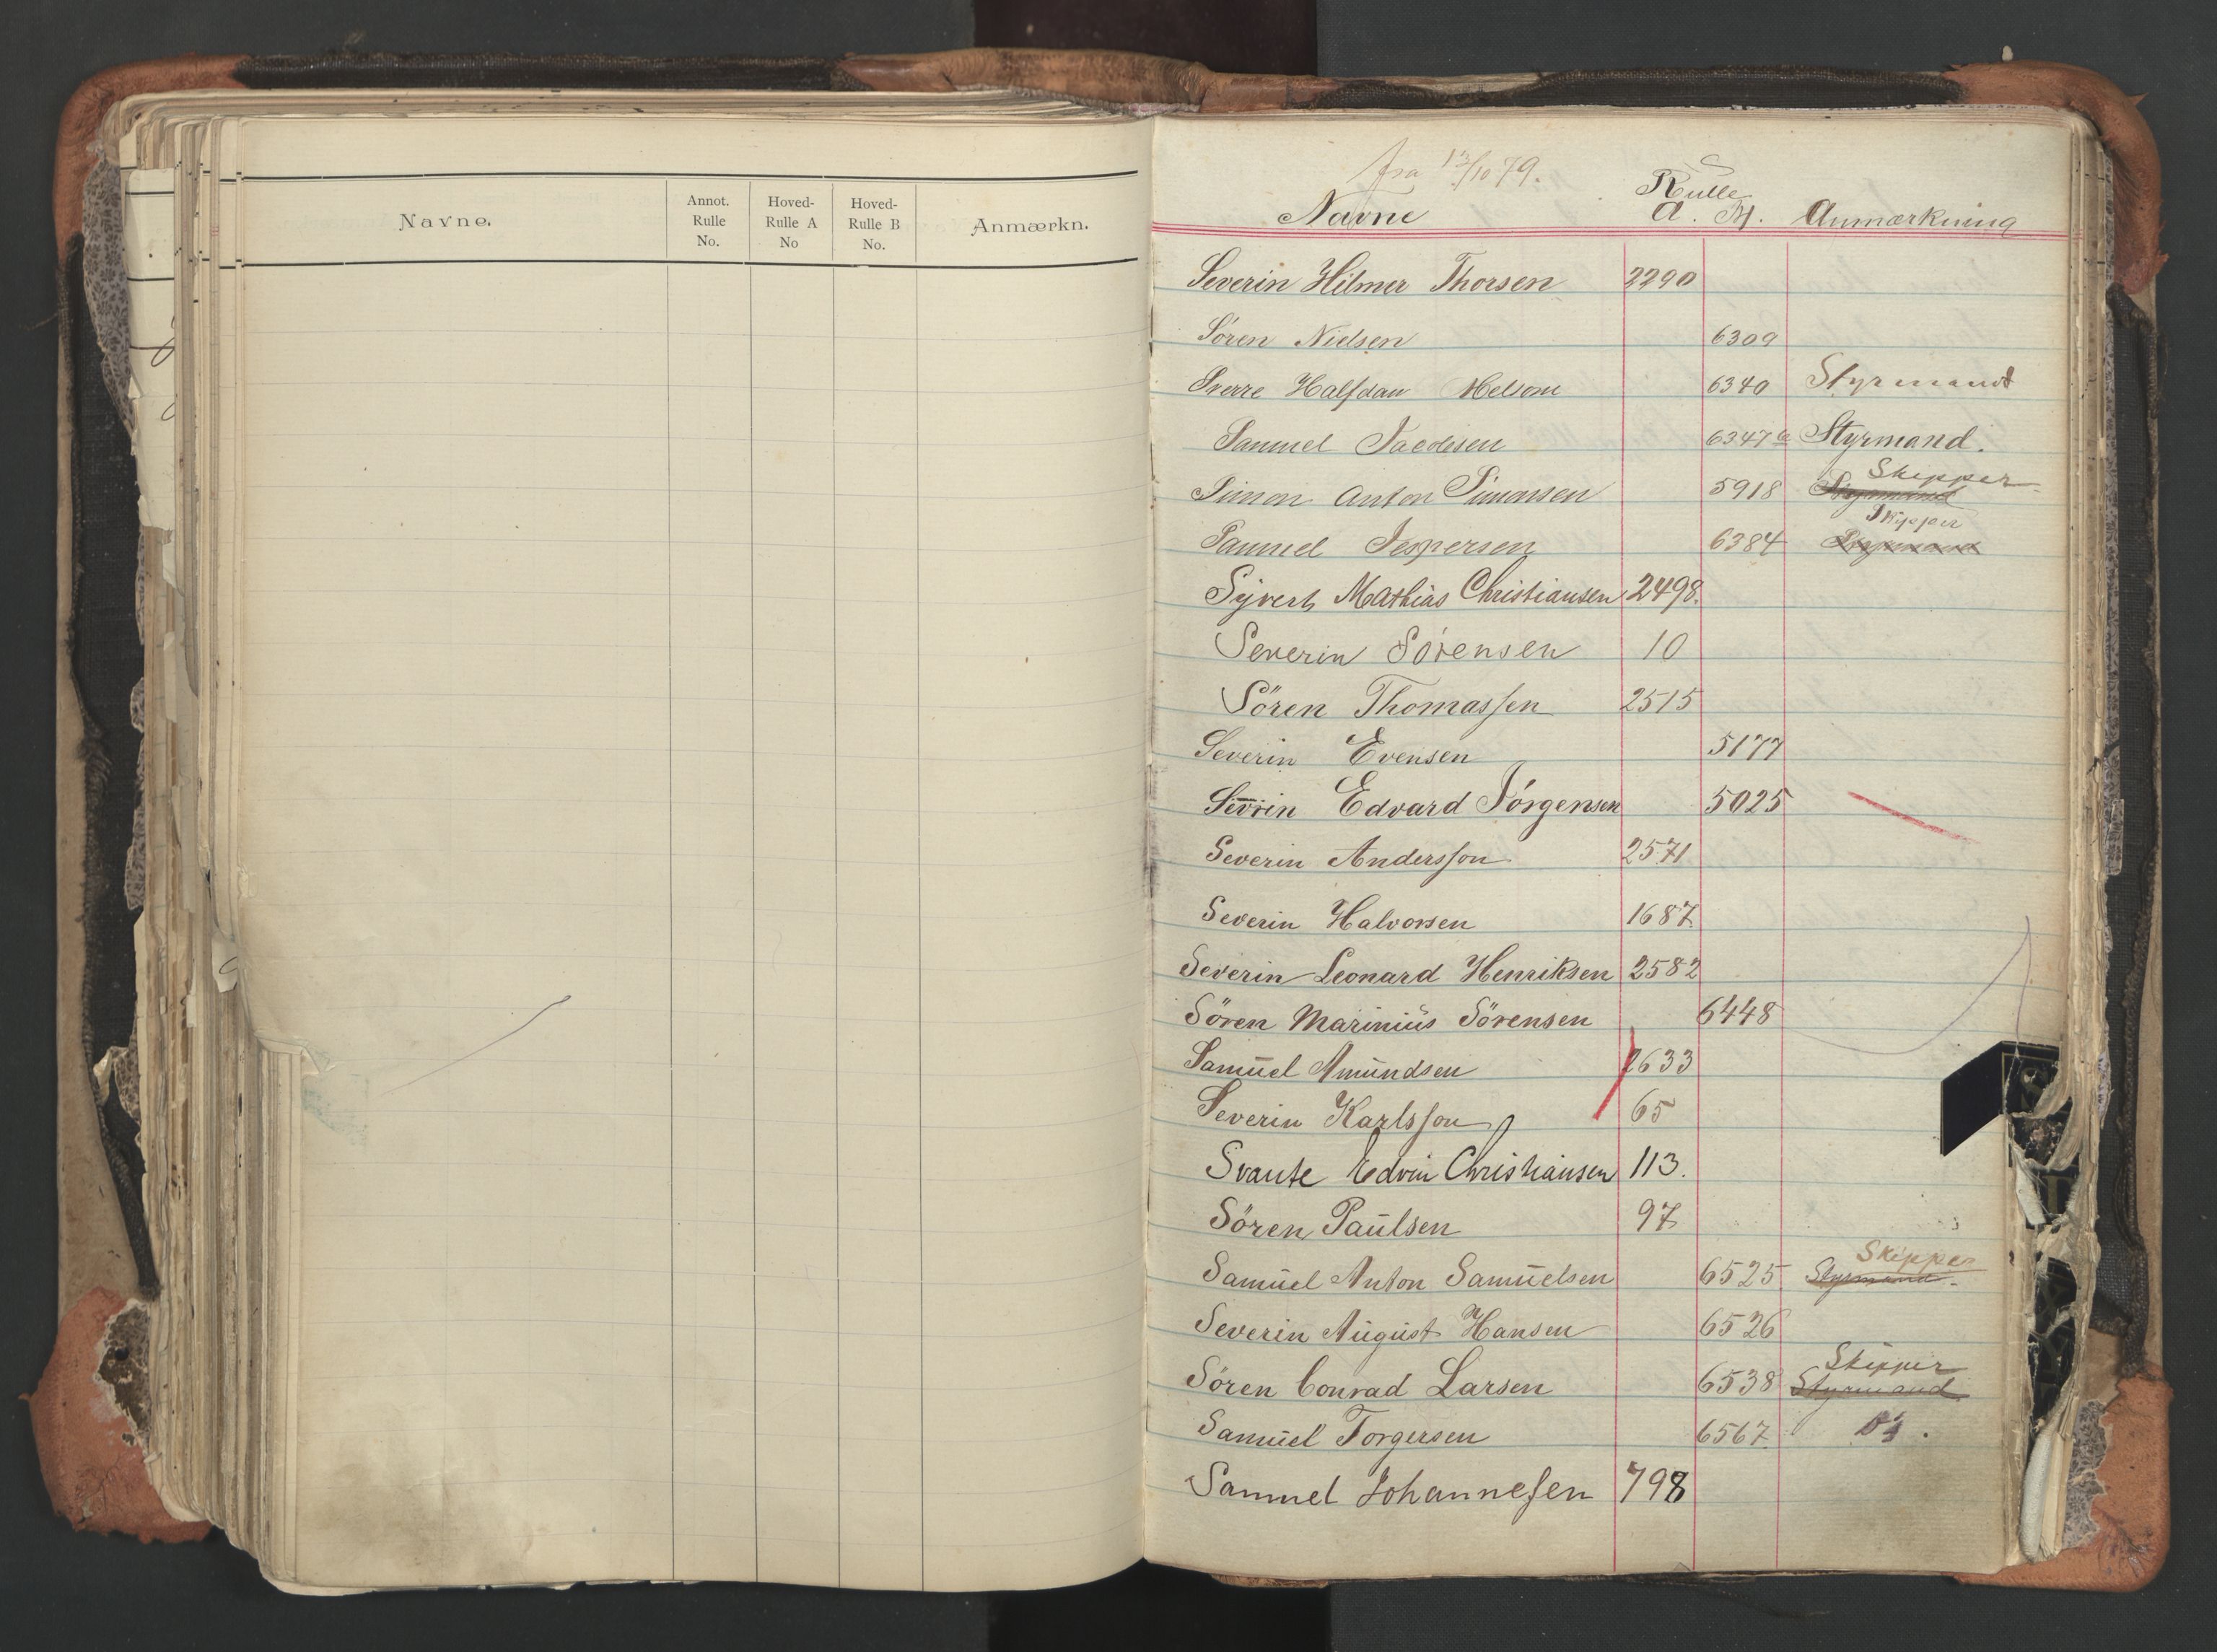 Navne.
Annot. Rulle No.
Hoved- Rulle A No
Hoved- Rulle B No.
Anmærkn.
fra 13/10 79.
Rulle
Navne A. H. Anmærkning
Severin Hilmer Thorsen 2290
Sören Nielsen 6309
Sverre Halfdan Melsom 6340 Styrmand
Samuel Jacobsen 6347 a Styrmand.
Skipper
Simon Anton Simonsen 5918 Styrmand
Skipper
Samuel Jespersen 6384 Styrmand
Syvert Mathias Christiansen 2498.
Severin Sörensen 10
Sören Thomassen 2515
Severin Evensen 5177
Severin Edvard Jörgensen 5025
Severin Andersson 2571
Severin Halvorsen 1687
Severin Leonard Henriksen 2582
Sören Marinius Sörensen 6448
Samuel Amundsen 2633
Severin Karlsson 65
Svante Edvin Christiansen 113.
Sören Paulsen 97
Skipper
Samuel Anton Samuelsen 6525 Styrmand.
Severin August Hansen 6526
Skipper
Sören Conrad Larsen 6538 Styrmand
Samuel Torgersen 6567
Samuel Johannesen 798